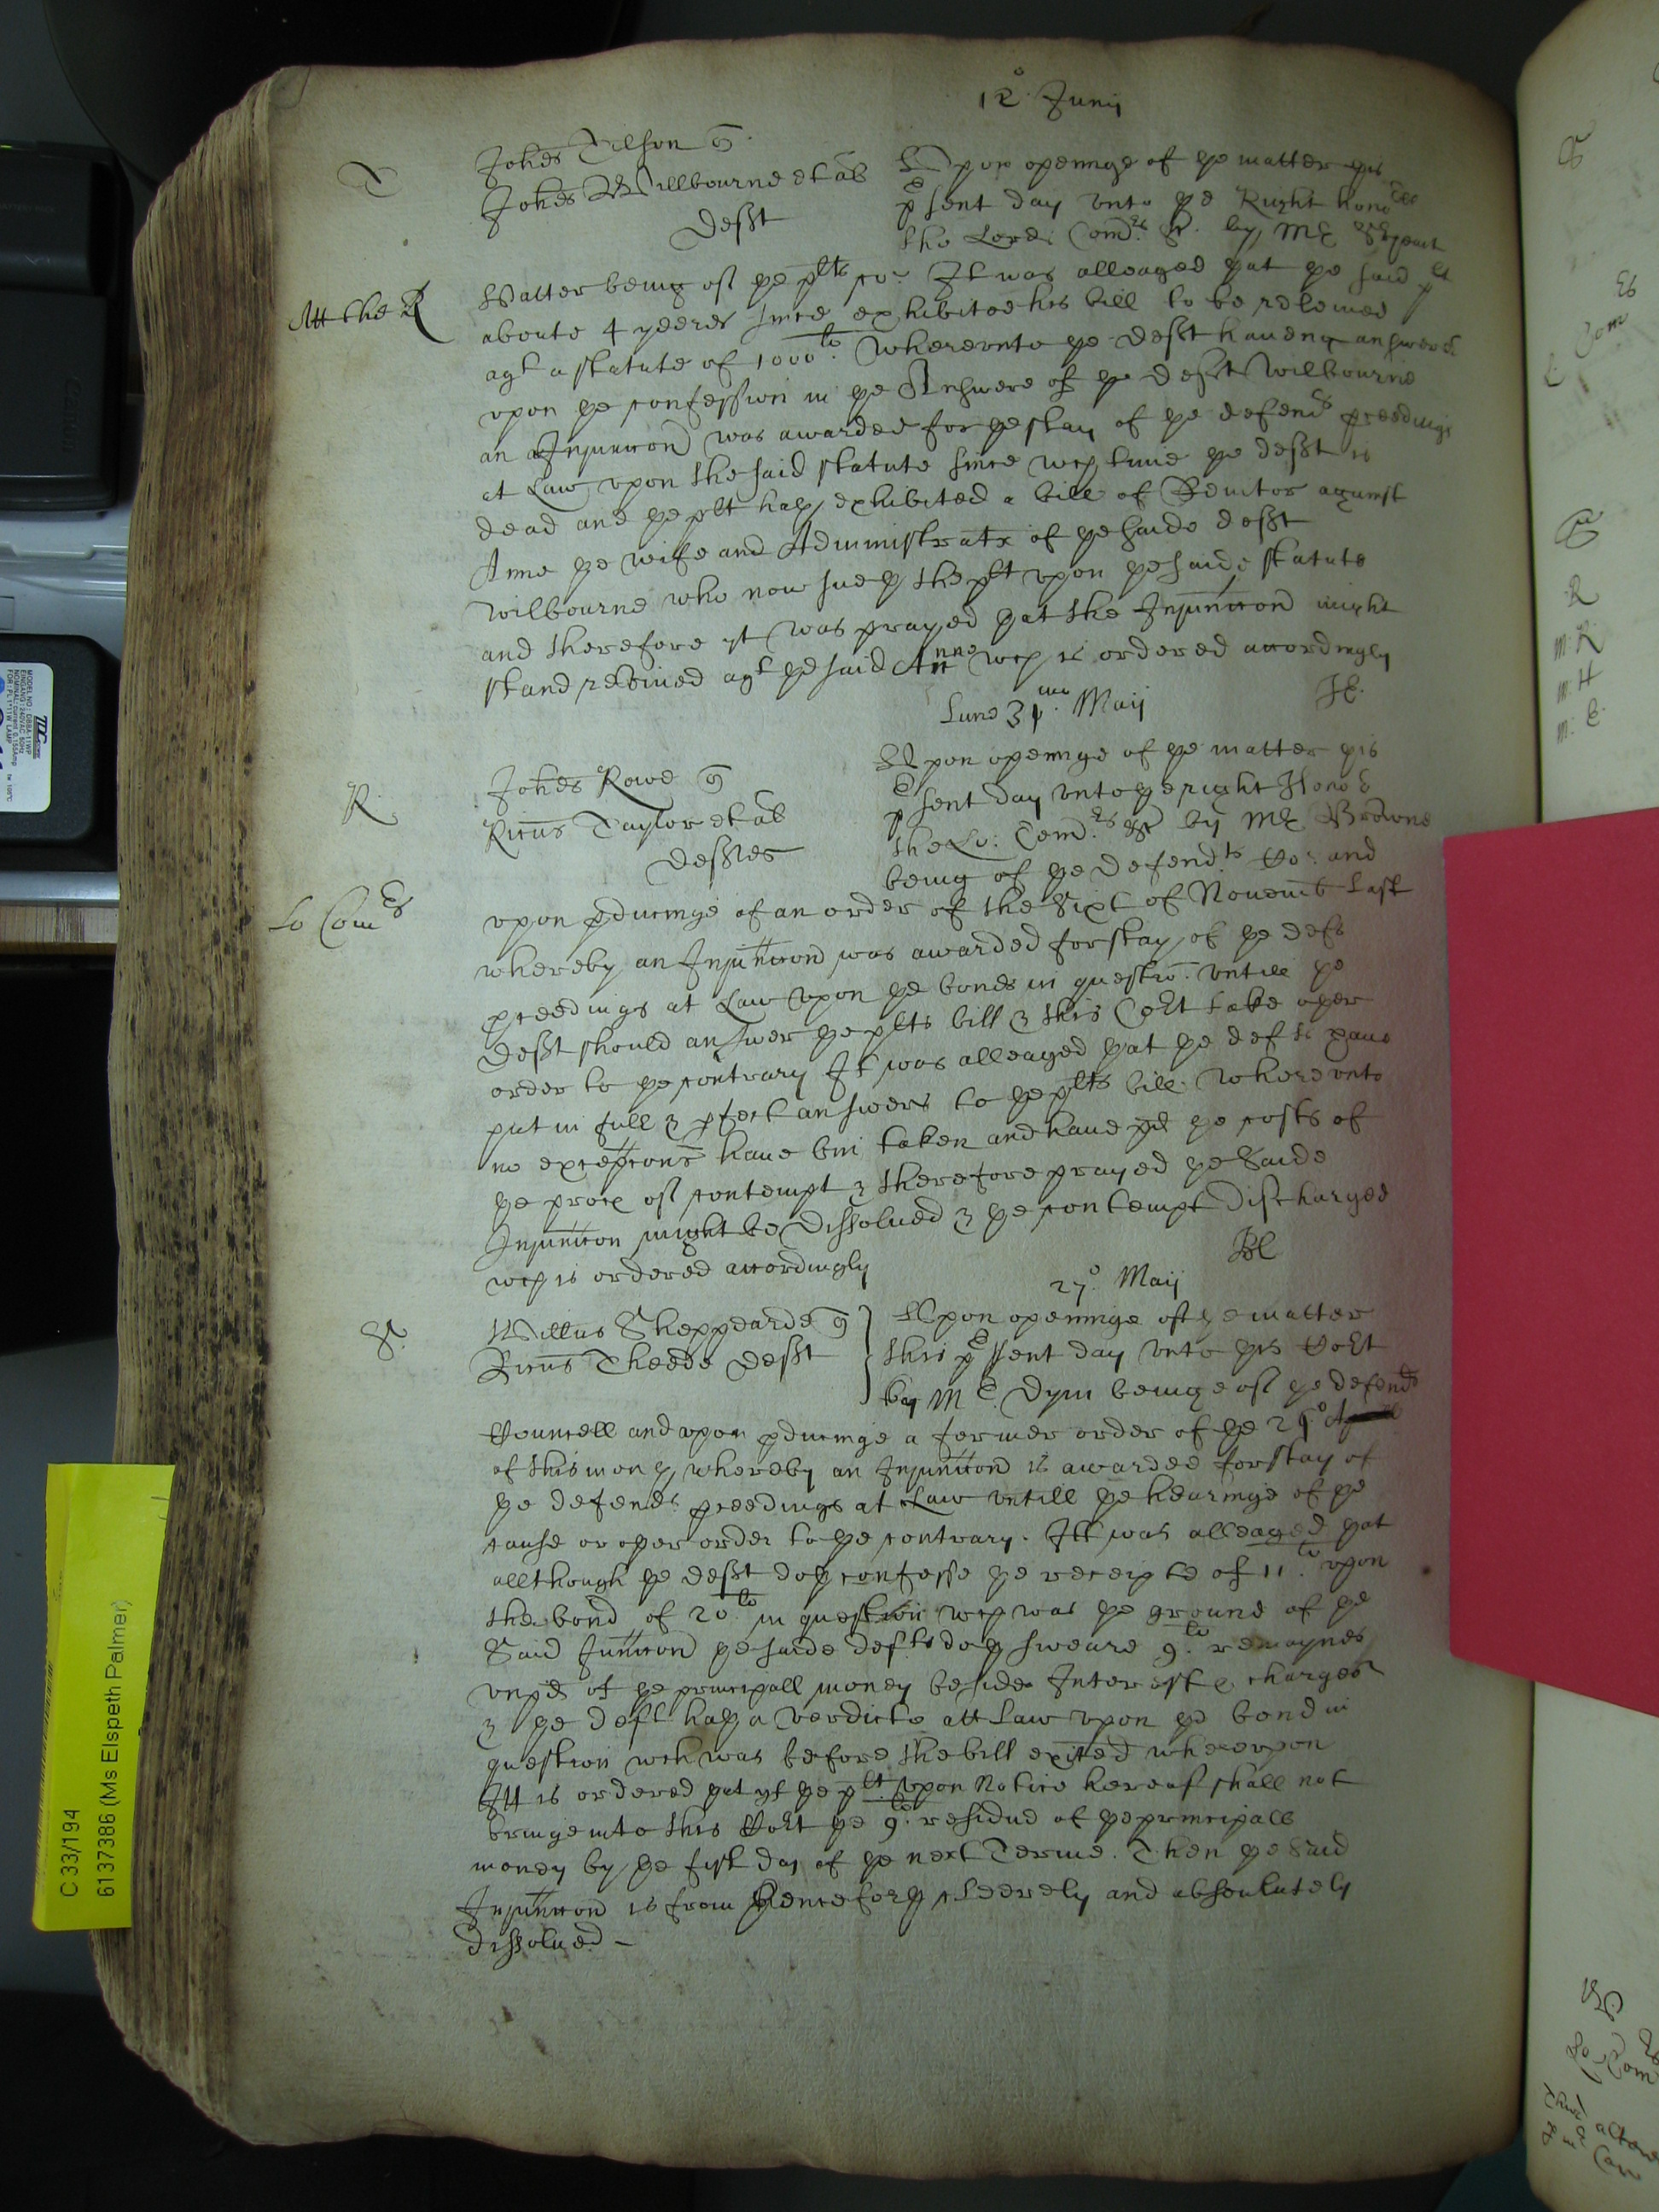 12° Junij
T
Johes Tilson q
Johes Willbourne et al
Defft
Vpon openinge of ye matter yis
p̄sent day vnto ye Right hono
the Lordes Com̄rs &c. by Mr
Att the R
Watter being of ye plts co: It was alleaged yat ye said plt
aboute 4 yeeres since exhibited his bill to be releiued
agt a statute of 1000li. Wherevnto ye defft haueng answered
vpon ye confession in ye Answere of ye defft Wilbourne
an Injunccon was awarded for ye stay of ye defends pceedings
at Law vpon the said statute since wch time ye defft is
dead and ye plt hath exhibited a bill of Reuiuor against
Anne ye wife and Administratx of ye saide defft
Wilbourne who now sueth the plt vpon ye saide statute
and therefore yt was prayed yat the Injunccon might
stand reviued agt ye said Anne wch is ordered accordingly
Lune 31mo. Maij
R.
Johes Rowe q
Ricus Taylor et al
defftes
Vpon openinge of ye matter yis
p̄sent day vnto ye right Hono
the Lo: Com̄rs &c by Mr Browne
being of ye defendts Co: and
Lo Comrs
vpon pducinge of an order of the Sixt of Nouemb last
whereby an Injunccon was awarded for stay of ye defs
pceedings at Law vpon ye bonds in questio. vntill ye
defft should answer ye plts bill & this Cort take oyer
order to ye contrary It was alleaged yat ye defts haue
put in full & pfect answers to ye plts bill Wherevnto
no excepcons haue bin taken and haue pd ye costs of
ye proces of contempt & therefore prayed ye Saide
Injunccon might be Dissolued & ye contempt discharged
wch is ordered accordingly
27° Maij
S.
Willus Sheppearde q
Ricus Theede Defft
Vpon openinge of ye matter
this p̄sent day vnto yis Cort
by Mr. Dym being of ye defends
Councell and vpon pducinge a former order of ye
of this month whereby an Injunccon is awarded for stay of
ye defends pceedings at Law vntill ye hearinge of ye
cause or oyer order to ye contrary. Itt was alleaged yat
allthough ye defft doth confesse ye receipte of 11li. vpon
the bond of 20li in question wch was ye ground of ye
Said Junccon ye saide defts doth sweare 9li. remaynes
vnpd of ye principall money beside Interest & charges
& ye deft hath a verdicte att Law vpon ye bond in
question wch was before the bill exited wherevpon
Itt is ordered yat yf ye plt vpon Notice hereof shall not
bringe into this Cort ye 9li. residue of ye principall
money by ye first day of ye next Terme. Then ye Said
Injunccon is from henceforth cleerely and absoulutely
dissolued -
C 33/194
6137386 (Ms Elspeth Palmer)